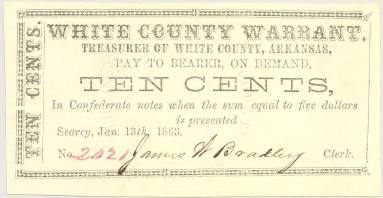 TEN CENTS.
WHITE COUNTY WARRANT,
TREASURER OF WHITE COUNTY, ARKANSAS,
PAY TO BEARER, ON DEMAND,
TEN CENTS,
In Confederate notes when the sum equal to five dollars
is presented
Searcy, Jan. 13th, 1863.
No. 2021 James W Bradley Clerk.